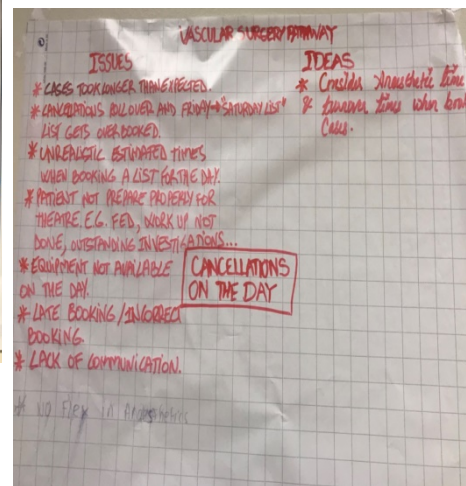 VASCULAR SURGERY PATHWAY
ISSUES
* CASES TOOK LONGER THAN EXPECTED.
* CANCELLATIONS ROLL OVER AND FRIDAY → "SATURDAY LIST"
LIST GETS OVERBOOKED.
* UNREALISTIC ESTIMATED TIMES
WHEN BOOKING A LIST FOR THE DAY.
* PATIENT NOT PREPARE PROPERLY FOR
THEATRE. E.G. FED, WORK UP NOT
DONE, OUTSTANDING INVESTIGATIONS...
* EQUIPMENT NOT AVAILABLE
ON THE DAY.
* LATE BOOKING / INCORRECT
BOOKING.
* LACK OF COMMUNICATION.
* No Flex in
CANCELLATIONS
ON THE DAY
IDEAS
* Consider Anaesthetic time
& time when
Cases.